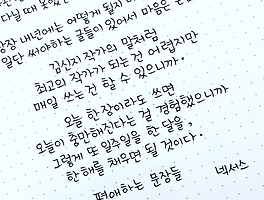 다닐 때 못했
장 내년에는 어떻게 될지
일단 써야하는 글들이 있어서 마음은
김신지 작가의 말처럼
최고의 작가가 되는 건 어렵지만
매일 쓰는 건 할 수 있으니까.
오늘 한 장이라도 쓰면
오늘이 충만해진다는 걸 경험했으니까
그렇게 또 일주일을 한 달을,
한 해를 채우면 될 것이다.
편애하는 문장들 넥서스